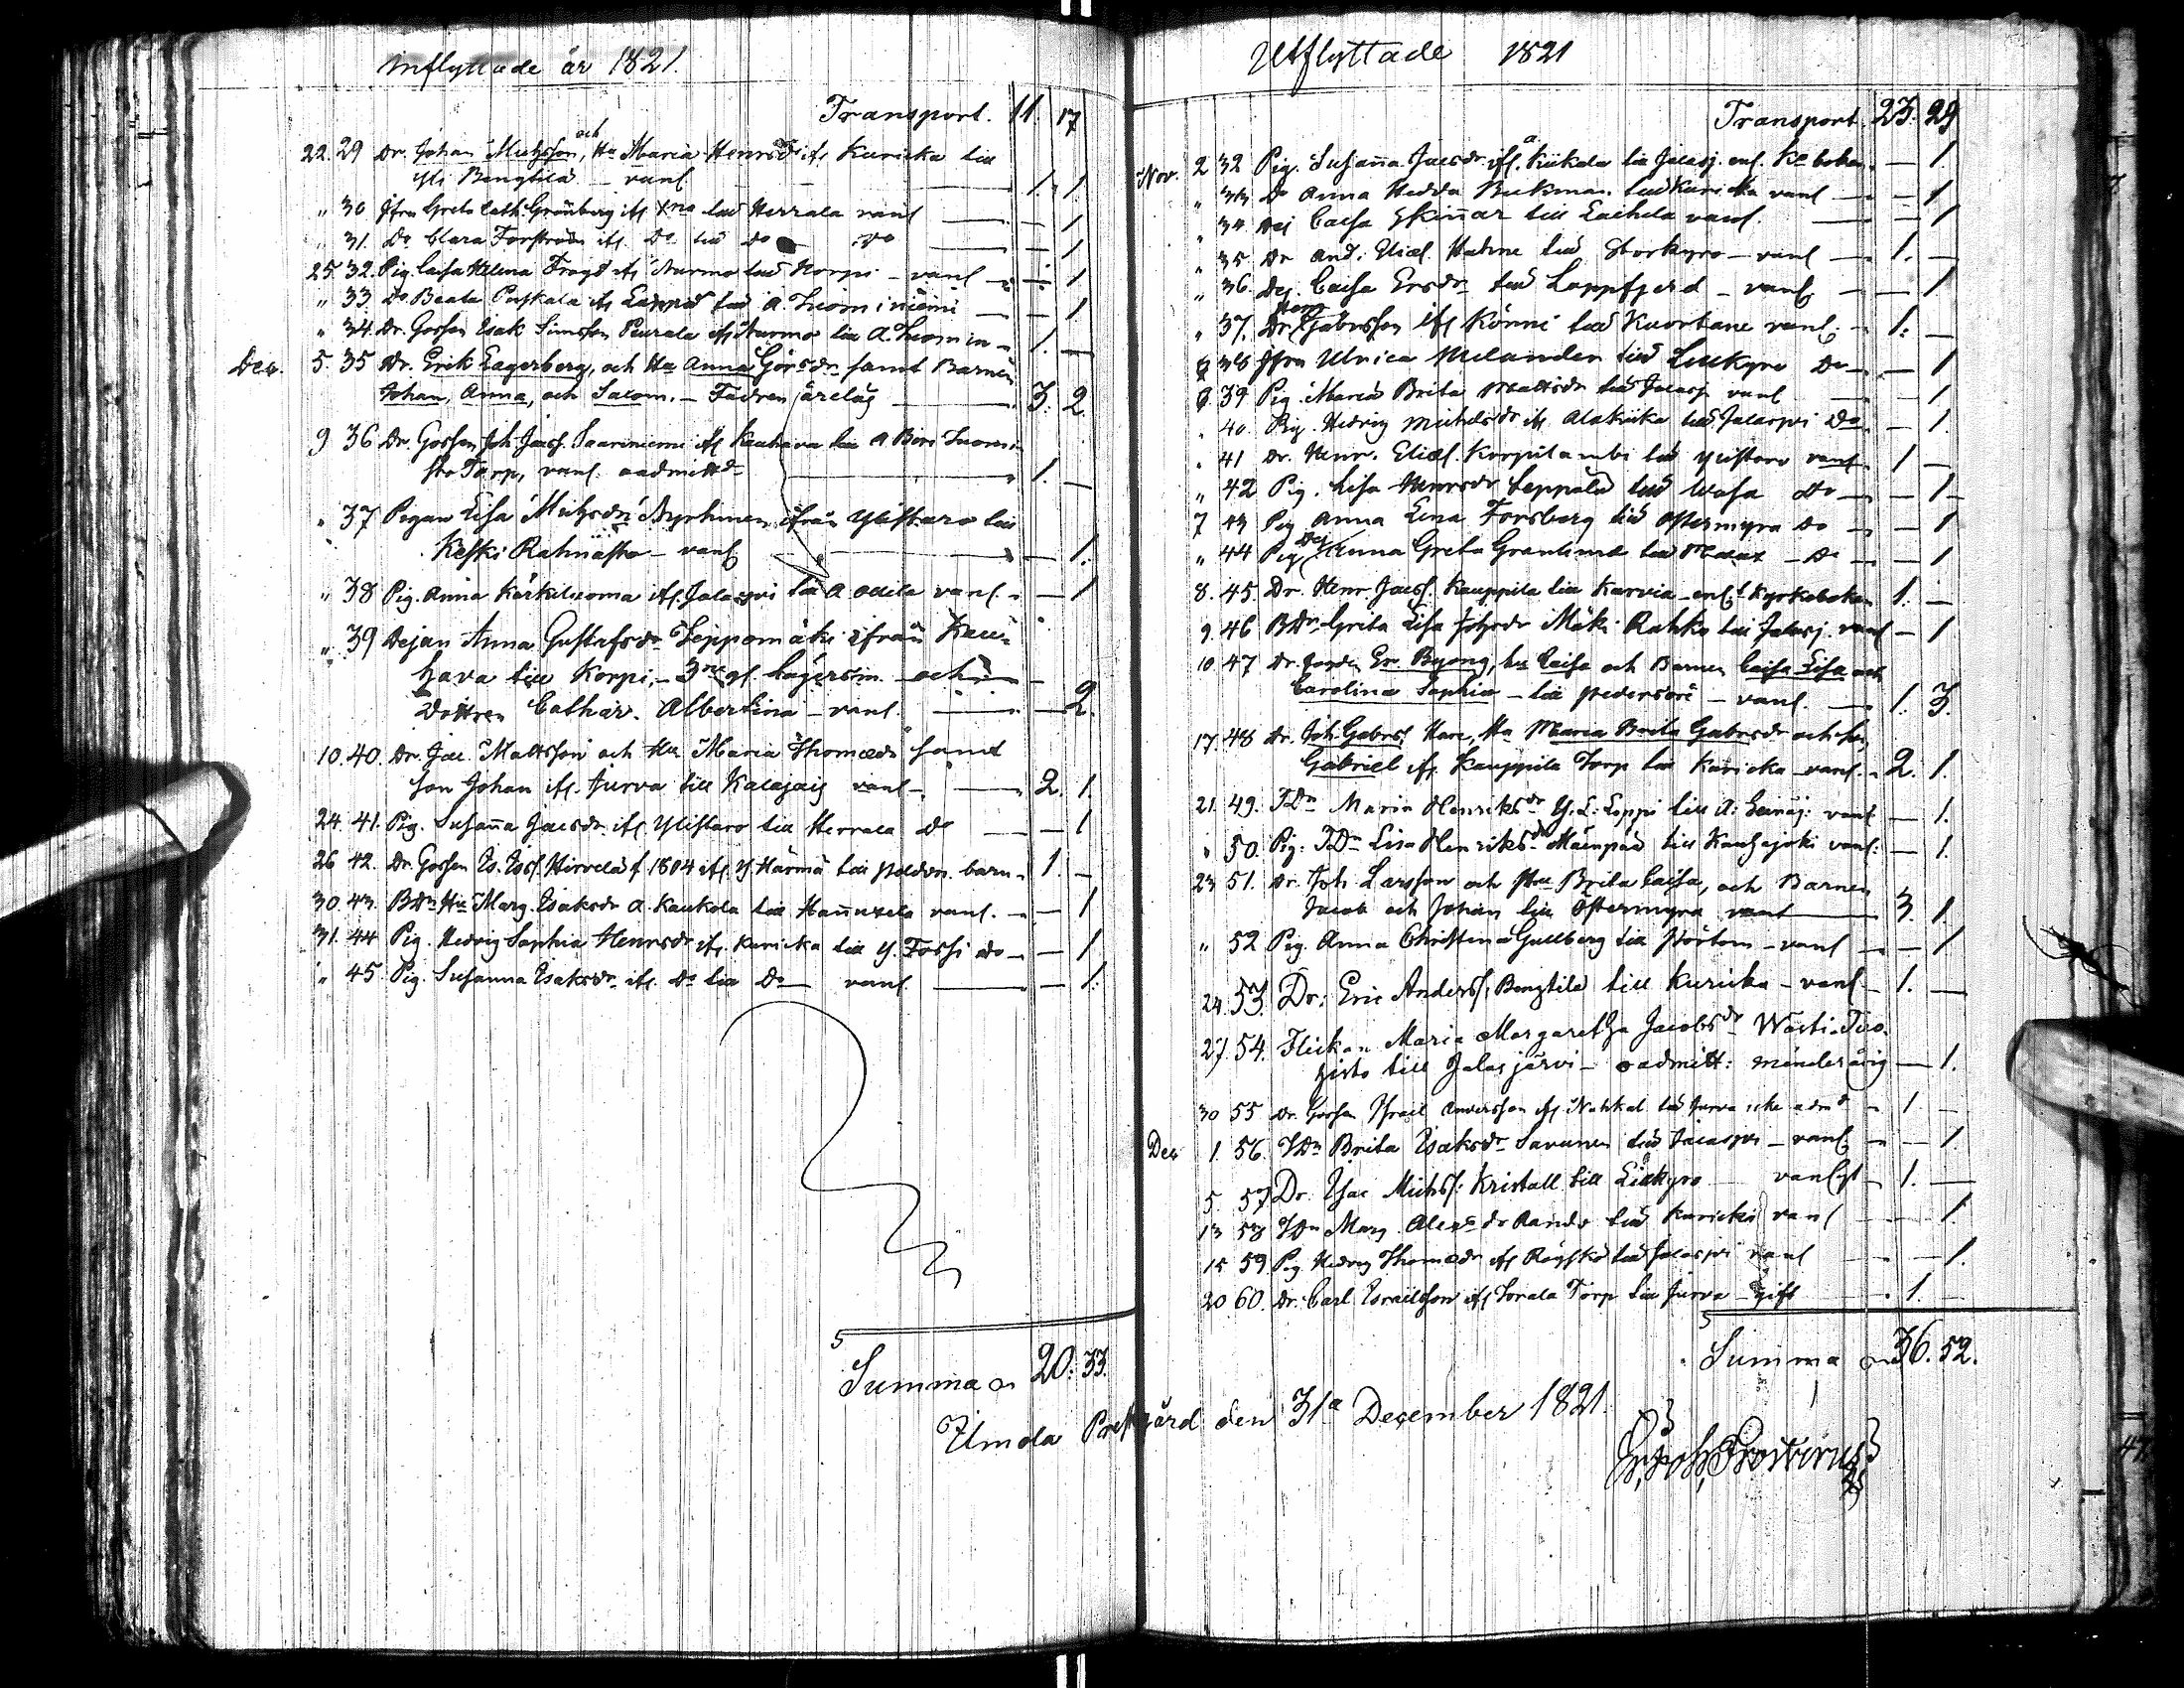 Inflyttade år 1821.
Transport. 11. 17
22. 29 Dr. Johan Michsson, och Hu Maria Henrsdr ifr Kuricka till
Yli Bengtila - vanl. 1. 1.
" 30 Jfru Greta Cath. Grönberg ifr Xna till Herrala vanl — 1
" 31. Do Clara Forström ifr. Do till do do — 1
25. 32. Pig. Caisa Helena Fragd ifr Nurmo till Korpi - vanl — 1
" 33 Do Beata Puskala ifr Lappo till A. Luominiemi — 1
" 34. Dr. Gossen Esak Simsson Peurala ifr Nurmo till A. Luomin - 1. —
Dec. 5. 35 Dr. Erik Lagerberg, och Hu Anna Görsdr samt Barnen
Johan, Anna, och Salom. - Fadren ärelös 3. 2.
9 36 Dr. Gossen Joh. Jacs. Saariniemi ifr Kauhava till A Bors Luoma
sto Torp, vanl. oadmittd 1. —
" 37 Pigan Lisa Michsdr Myrkinen ifrån Ylistaro till
Keski Rahnasto - vanl — 1.
" 38 Pig. Anna Kärkiluoma ifr. Jalasjvi till A Odila vanl. — 1
" 39 Dejan Anna Gustafsdr Seppomäki ifrån Kau-
hava till Korpi, - 3ne gl. lägersm. och
Dottren Cathar. Albertina - vanl. — 2.
10. 40. Dr. Jac. Mattsson och Hu Maria Thomædr samt
Son Johan ifr. Jurva till Kalajaig vanl - 2. 1.
24. 41. Pig. Susanna Jacsdr ifr Ylistaro till Herrala do — 1
26 42. Dr. Gossen Es. Ess. Hirvelä f. 1804 ifr. Y. Härmä till Poldrs. barn. 1. —
30. 43. BDr Hu Marg. Esaksdr A. Kaukola till Hannuxela vanl. — 1
31. 44 Pig. Hedvig Sophia Henrsdr ifr. Kuricka till Y. Fossi do — 1
" 45 Pig. Susanna Esaksdr ifr. do till Do vanl — 1.
Summa 20. 33.
Utflyttade 1821
Transport. 23. 29
Nov. 2 32 Pig. Susanna Jacsdr ifr. Kiikala till Jalasj. enl. Ko boken — 1
" 33 Do Anna Hedda Beckman till Kuricka vanl — 1
" 34 Dej Caisa Skinnar till Laihela vanl. — 1
" 35 Dr And. Elias. Hahne till Storkyro - vanl 1. —
" 36. Dej. Caisa Ersdr till Lappfjerd - vanl — 1
" 37. Dr. Gabrsson ifr Könni till Kuortane vanl. 1. —
6 38 Jfru Ulrica Melander till Lillkyro Do — 1
6. 39 Pig. Maria Brita Mattsdr till Jalasj vanl — 1
" 40. Pig. Hedvig Michelsdr ifr Alakiika till Jalasjvi Do — 1.
" 41 Dr. Henr. Elias. Korpilambi till Ylistaro vanl 1 —
" 42 Pig. Lisa Henrsdr Seppälä till Wasa do — 1
7 43 Pig Anna Lena Forsberg till Östermyra do — 1
" 44 Pig Dej Anna Greta Granlund till Malax - do — 1
8. 45. Dr. Henr. Jacs. Kauppila till Karvia - enl. Kyrkoboken 1. —
9. 46 BDr Greta Lisa Johsdr Mäki Rahko till Jalasj. vanl — 1
10. 47 Dr. Er. Byong, hu Caisa och Barnen Caisa Lisa och
Carolina Sophia - till Pedersöre - vanl. 1. 3.
17. 48 Dr. Joh. Gabrs. Hare, Hu Maria Brita Gabrsdr och son
Gabriel ifr. Kauppila Torp till Kuricka vanl. 2. 1.
21. 49. TDr Maria Henriksdr Y. L: Loppi till A: Seinäj: vanl — 1.
" 50. Pig: TDr Lisa Henriksdr Mäenpää till Kauhajoki vanl: — 1.
23 51. Dr. Joh. Larsson och Hu Brita Caisa, och Barnen
Jacob och Johan till Östermyra vanl 3. 1.
" 52 Pig. Anna Christina Gullberg till Pörtom - vanl — 1.
24. 53. Dr: Eric Anders. Bengtila till Kuricka - vanl. 1. —
27. 54. Flickan Maria Margaretha Jacobsdr Wästi-Tuo-
histo till Jalasjärvi - oadmitt: minderårig — 1.
30 55 Dr. Gossen Israel Andersson ifr Nahkal. till Jurva icke admd 1 —
Dec 1. 56. TDr Brita Esaksdr Savunen till Jalasjvi - vanl — 1.
5. 57 Dr. Isac Michs: Kristall till Lillkyro vanligt 1. —
13 58 TDr Marg. Alexsdr Rando till Kuricka vanl — 1.
15 59 Pig Hedvig Thomædr ifr Röyskö till Jalasjvi vanl — 1.
20 60. Dr. Carl Esraelsson ifr Sorala Torp till Jurva - gift 1. —
Summa 36. 52.
Ilmola Prestgård den 31a December 1821.